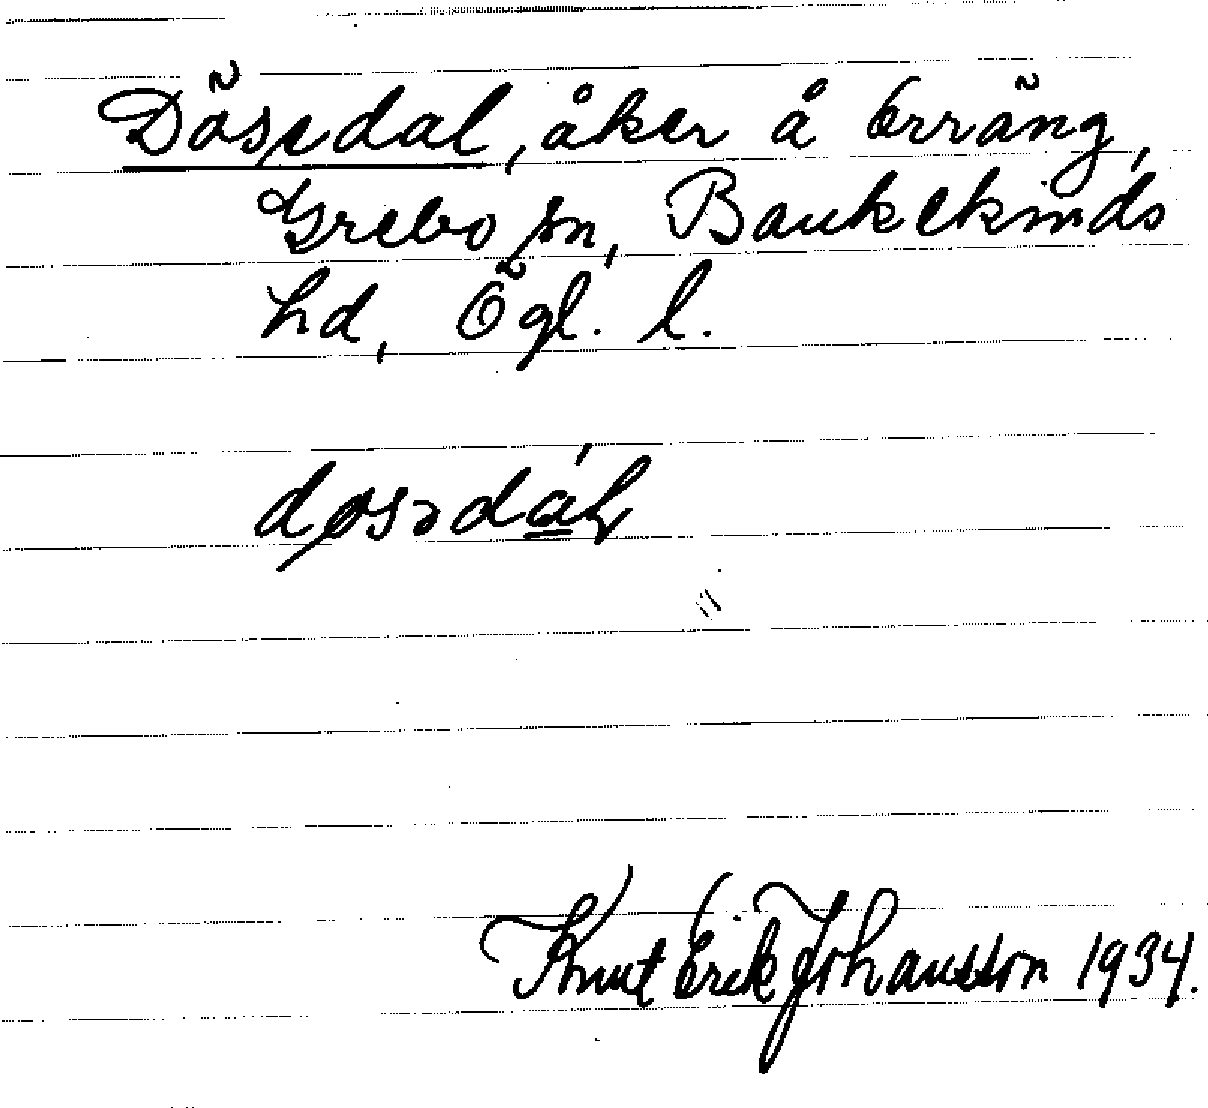 Dösedal, åker å Erräng,
Grebo sn, Bankekinds
hd, Ögl. l.
Knut Erik Johansson 1934.